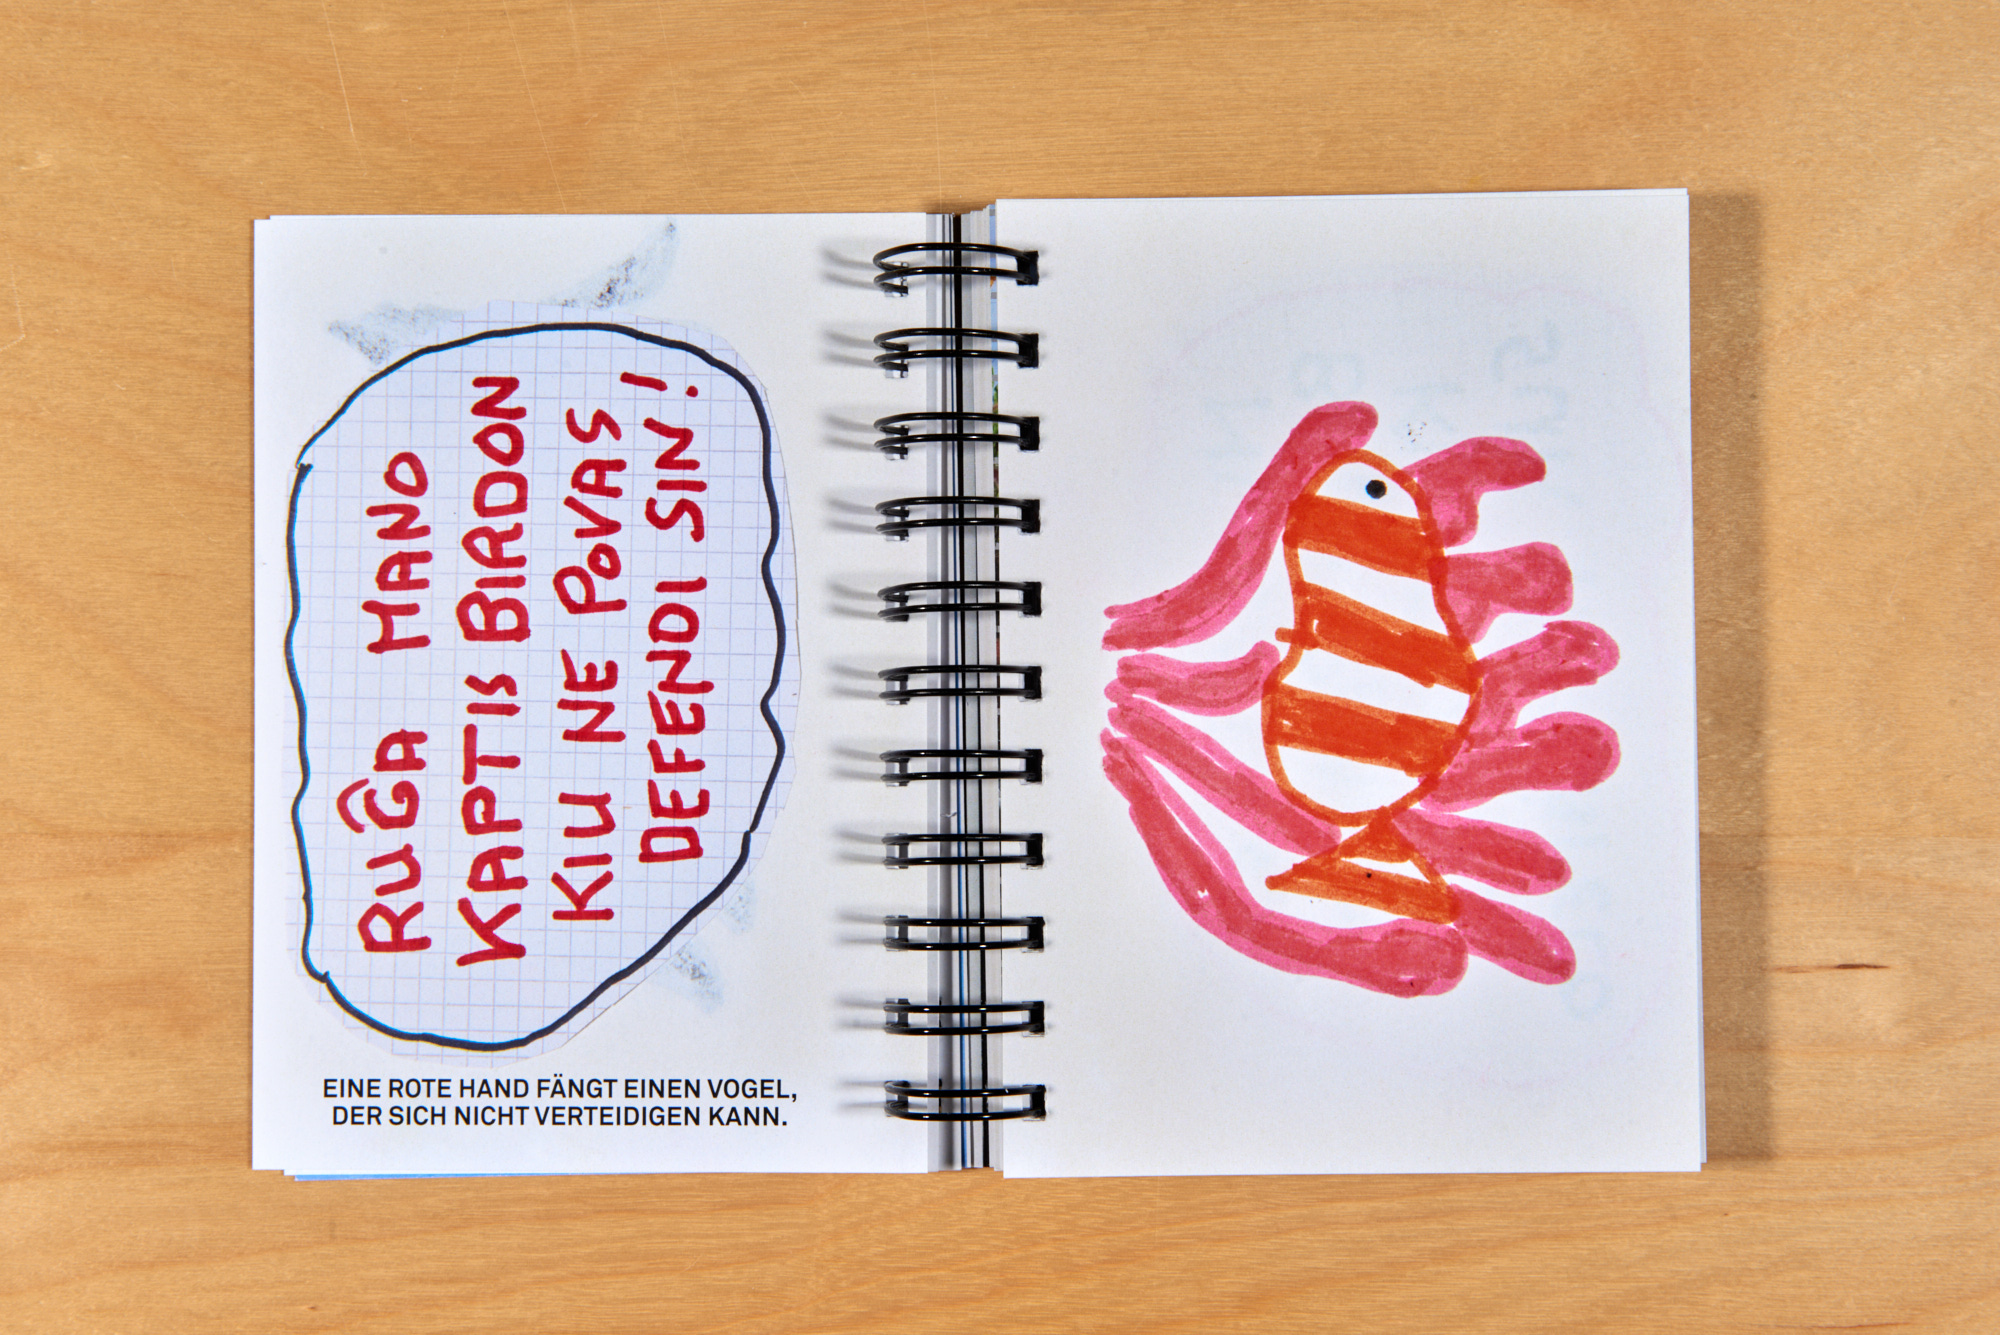 RUĜA MANO
KAPTIS BIRDON
KIU NE POVAS
DEFENDI SIN!
EINE ROTE HAND FÄNGT EINEN VOGEL,
DER SICH NICHT VERTEIDIGEN KANN.